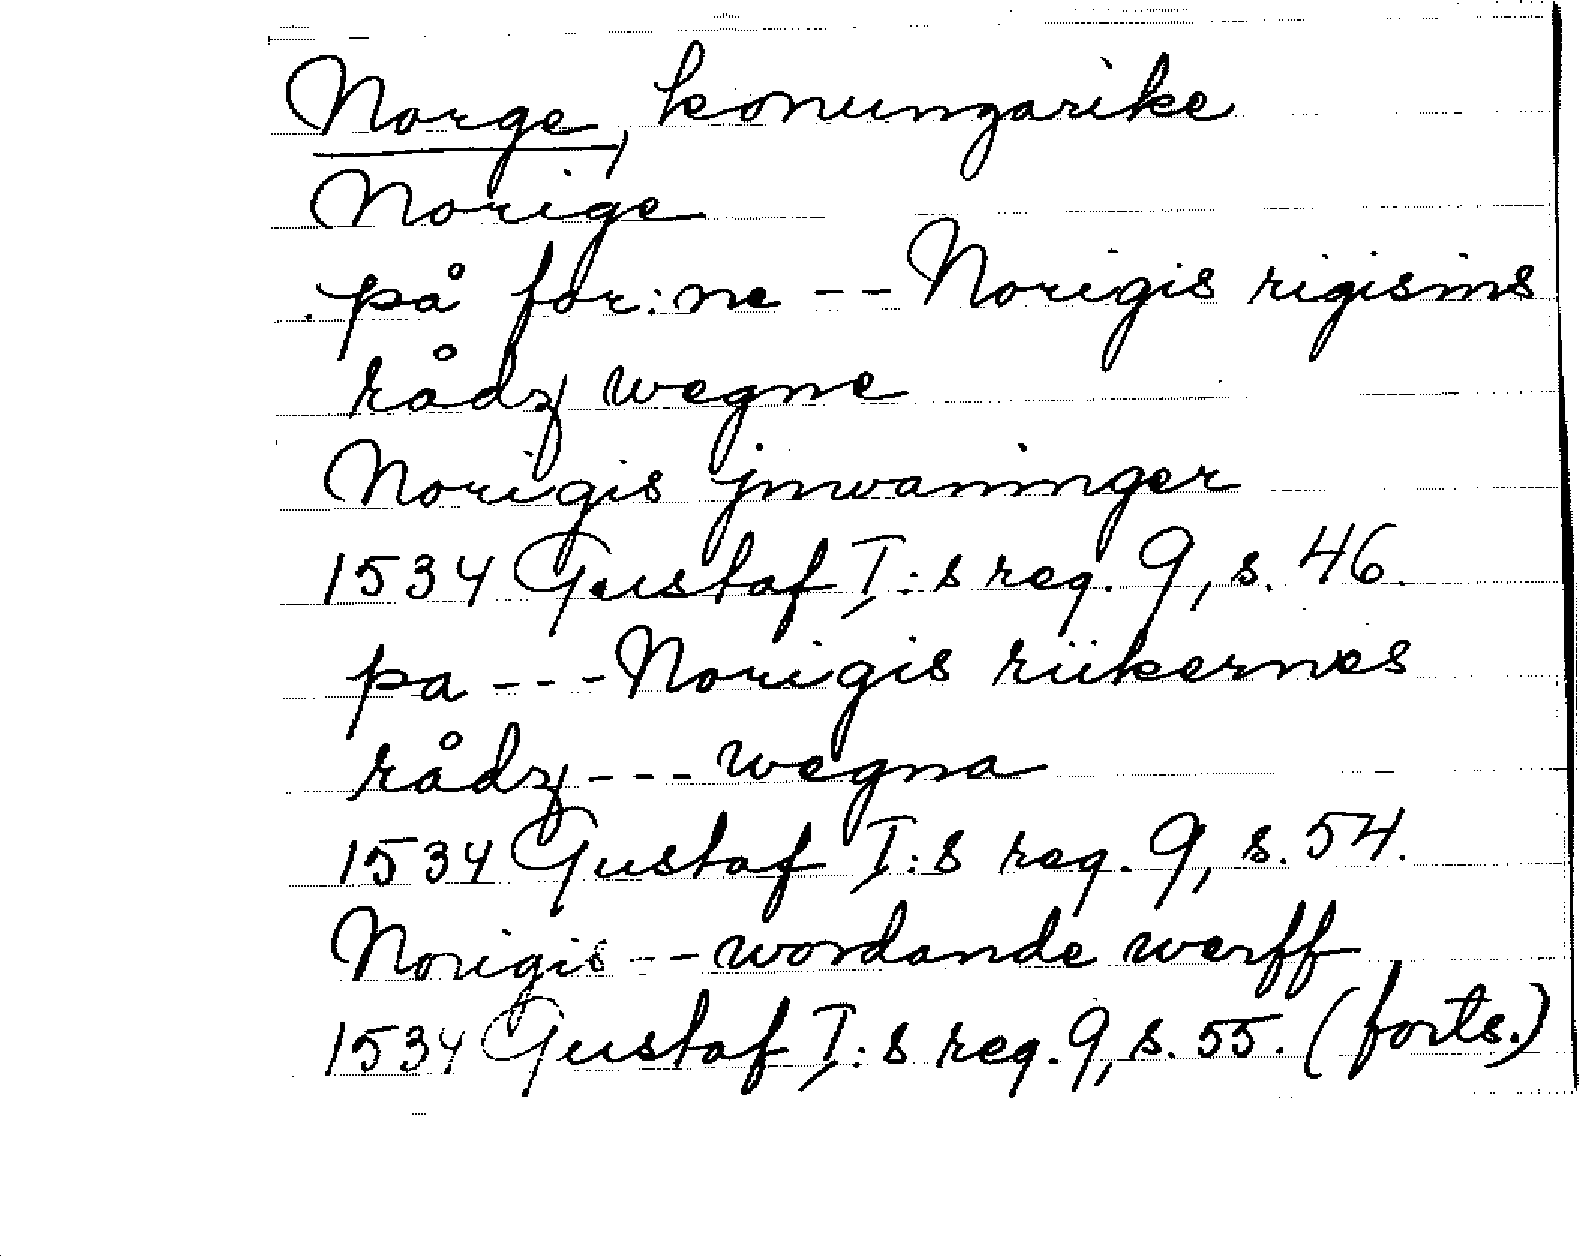 Norge, konungarike
Norige
på for:ne -- Norigis rigisins
rådz wegne
Norigis jnwaninger
1534 Gustaf I:s reg. 9, s. 46.
pa --- Norigis riikernes
rådz --- wegna
1534 Gustaf I:s reg. 9, s. 54.
Norigis -- wordande werff
1534 Gustaf I:s reg. 9, s. 55. (forts.)